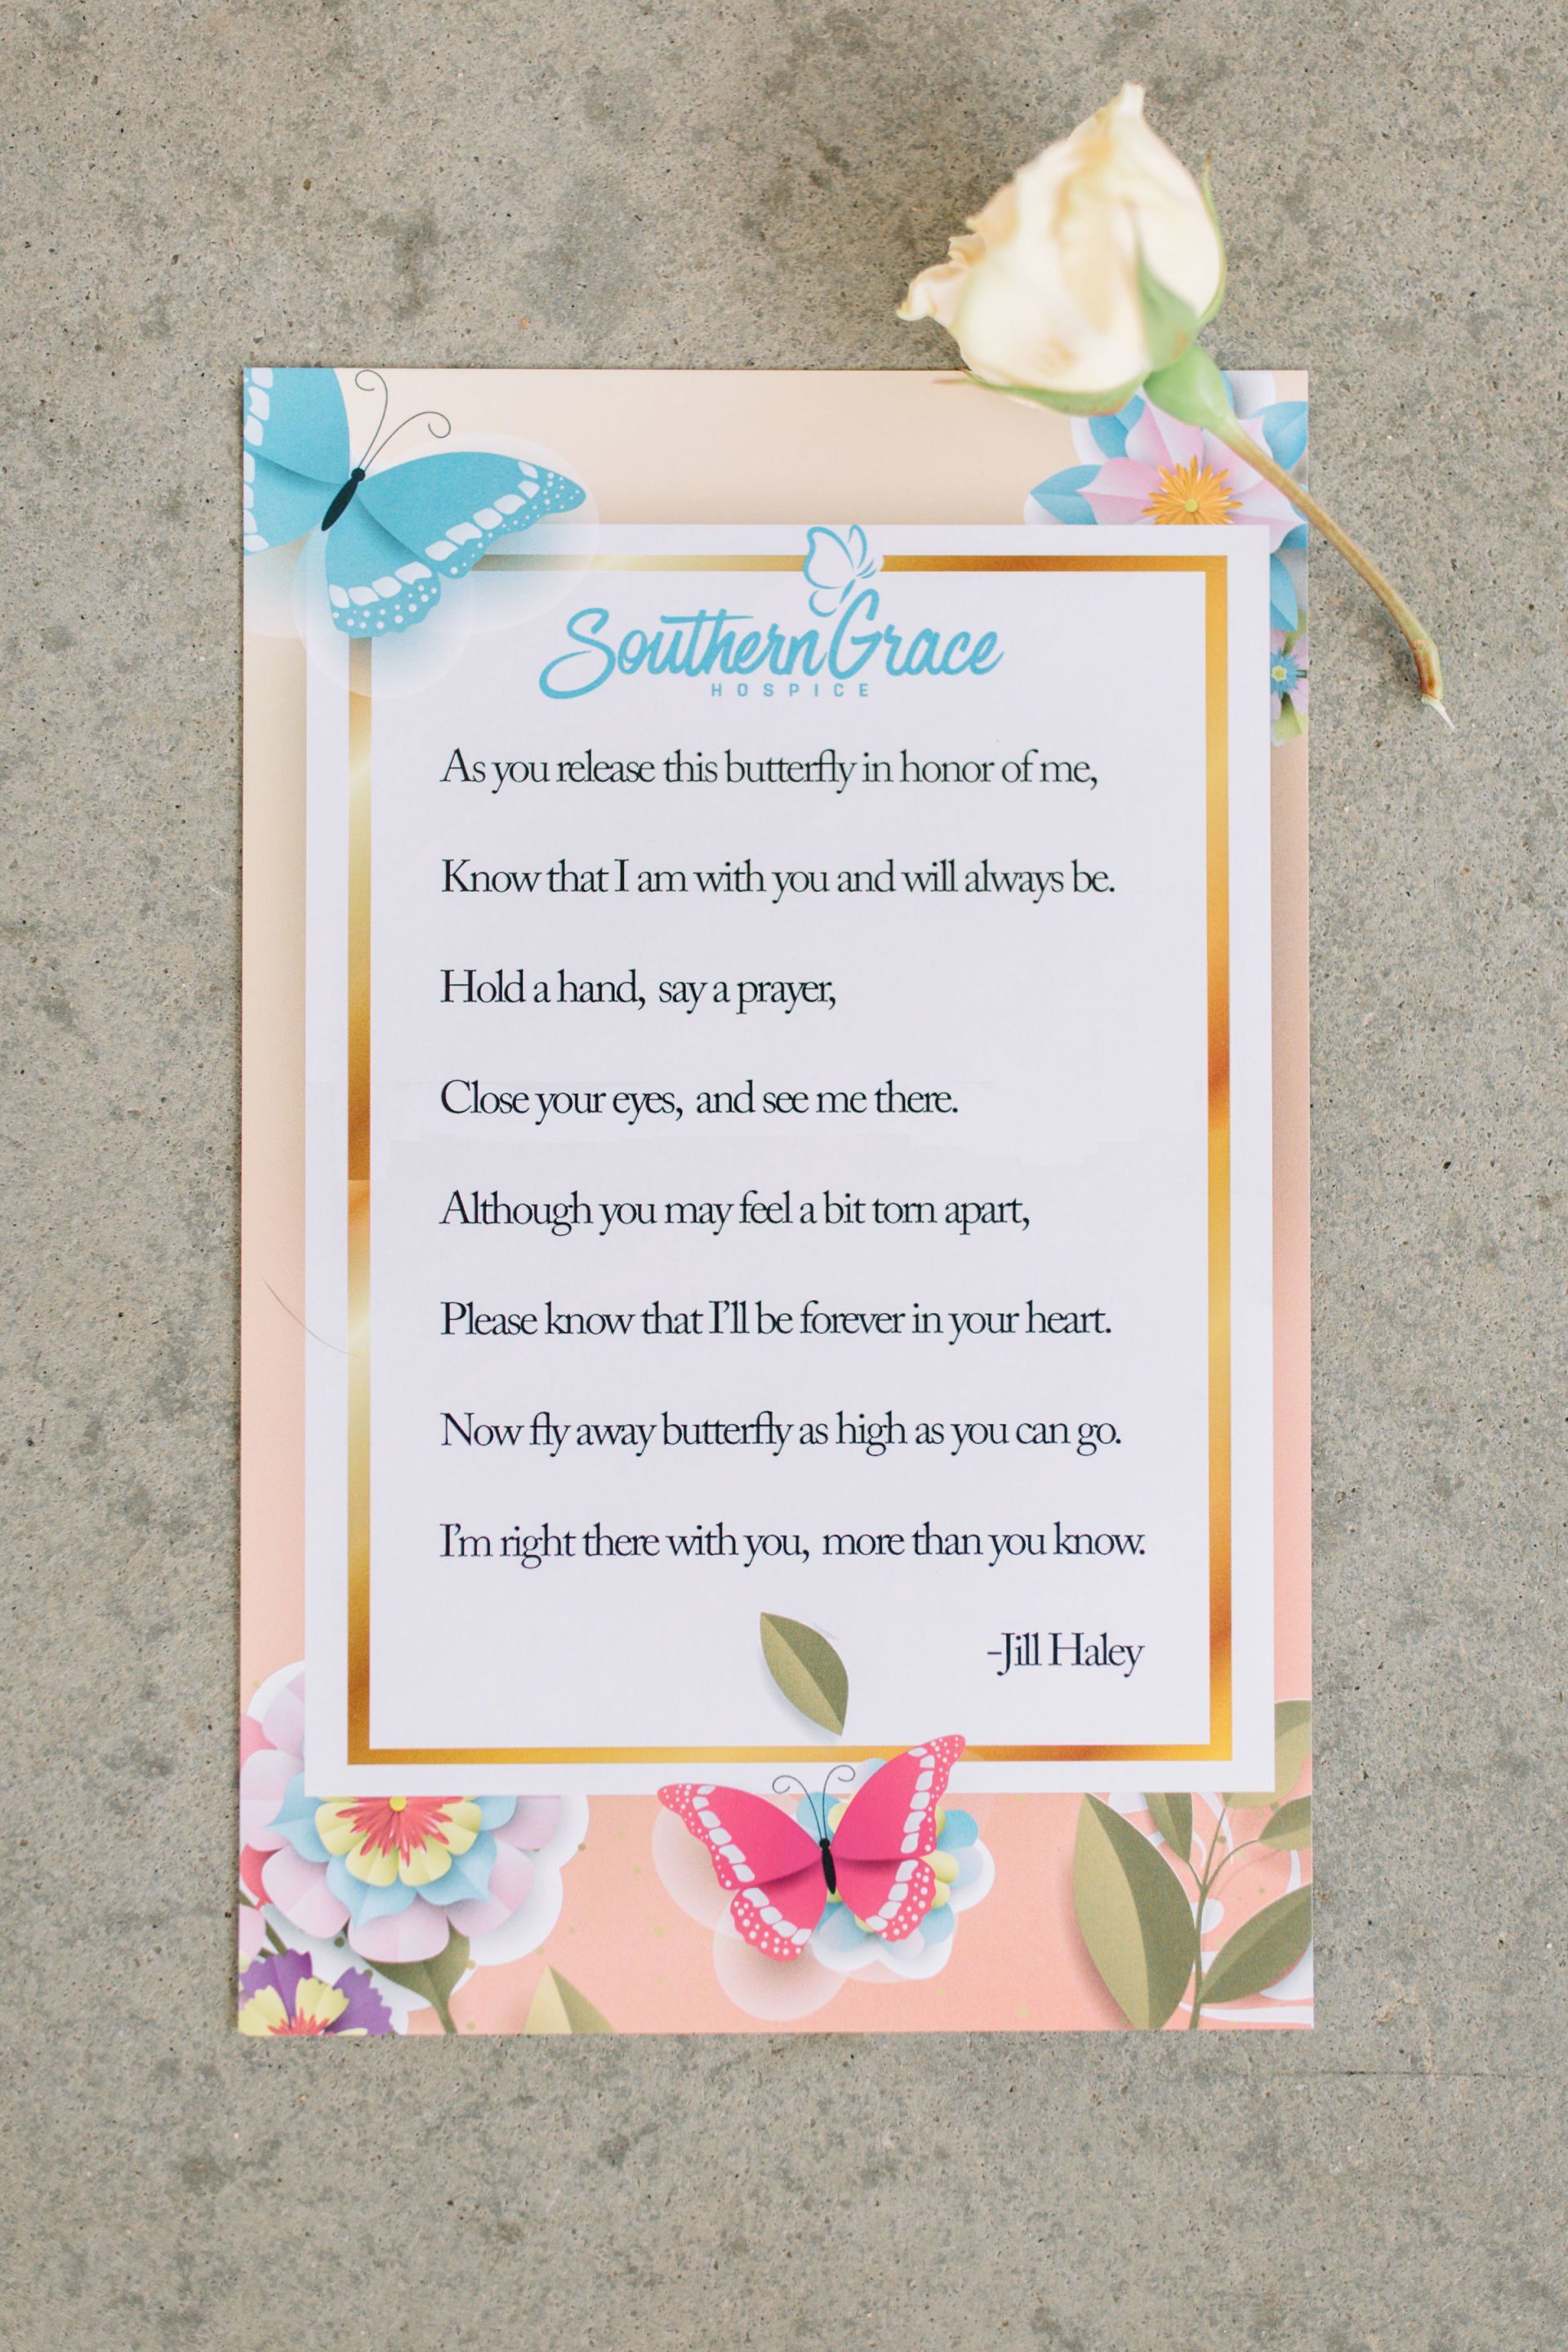 Southern Grace
HOSPICE
As you release this butterfly in honor of me,
Know that I am with you and will always be.
Hold a hand, say a prayer,
Close your eyes, and see me there.
Although you may feel a bit torn apart,
Please know that I'll be forever in your heart.
Now fly away butterfly as high as you can go.
I'm right there with you, more than you know.
-Jill Haley